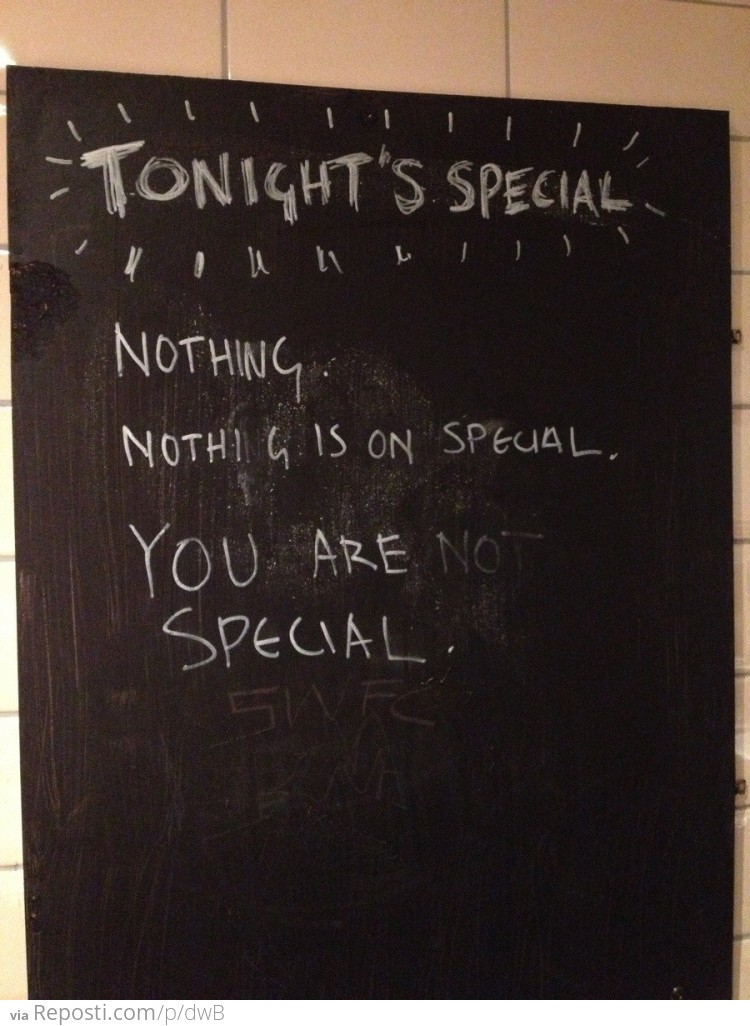 TONIGHT'S SPECIAL
NOTHING.
NOTHI G IS ON SPECIAL.
YOU ARE NOT
SPECIAL.
SWFC
via Reposti.com/p/dwB